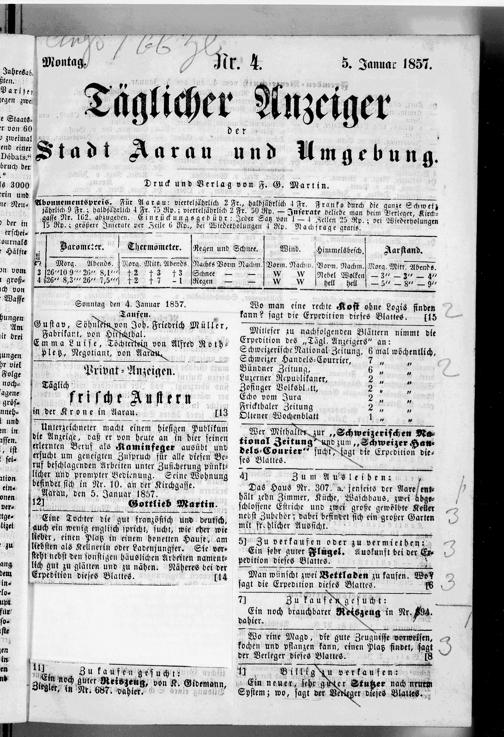 Montag. Nr. 4. 5. Januar 1857.
Täglicher Anzeiger
der
Stadt Aarau und Umgebung.
Druck und Verlag von F. G. Martin.
Abonnementspreis. Für Aarau: vierteljährlich 2 Fr., halbjährlich 4 Fr. Franko durch die ganze Schweiz
jährlich 9 Fr.; halbjährlich 4 Fr. 75 Rp.; vierteljährlich 2 Fr. 50 Rp. — Inserate beliebe man beim Verleger, Kirch-
gasse Nr. 162, abzugeben. Einrückungsgebühr: Jeder Satz von 1—4 Zeilen 25 Rp.; bei Wiederholungen
15 Rp.; größere Inserate per Zeile 6 Rp., bei Wiederholungen 4 Rp. Nachfrage gratis.
Barometer. Thermometer. Regen und Schnee. Wind. Himmelsbesch. Aarstand.
Morg. Abends. Morg. Mitt. Abends. Nachts Vorm. Nachm. Vorm. Nachm. Vorm. Nachm. Morg. Mitt. Abends.
3 26"10,9''' 26" 8,1''' +2 +3 +3 Schnee — — W W Regen Wolken — — —
4 26" 8,3''' 26" 7,5''' +2 +1 — Regen — — W W hell hell —5" —8" —9"
Sonntag den 4. Januar 1857.
Taufen.
Gustav, Söhnlein von Joh. Friedrich Müller,
Fabrikant, von Hirschthal.
Emma Luise, Töchterlein von Alfred Roth-
pletz, Negotiant, von Aarau.
Privat-Anzeigen.
Täglich
frische Austern
in der Krone in Aarau. [13
Unterzeichneter macht einem hiesigen Publikum
die Anzeige, daß er von heute an in hier seinen
erlernten Beruf als Kaminfeger ausübt und
ersucht um geneigten Zuspruch für alle diesen Be-
ruf beschlagenden Arbeiten unter Zusicherung pünkt-
licher und prompter Bedienung. Seine Wohnung
befindet sich in Nr. 10. an der Kirchgasse.
Aarau, den 5. Januar 1857.
12] Gottlieb Martin.
Eine Tochter die gut französisch und deutsch,
auch ein wenig englisch spricht, sucht, wie eher wie
lieber, einen Platz in einem honetten Hause, am
liebsten als Kellnerin oder Ladenjungfer. Sie ver-
steht nebst den sonstigen häuslichen Arbeiten nament-
lich gut zu glätten und zu nähen. Näheres bei der
Expedition dieses Blattes. [14
11] Zu kaufen gesucht:
Ein noch guter Reiszeug, von K. Gidemann,
Ziegler, in Nr. 687. dahier.
Wo man eine rechte Kost ohne Logis finden
kann? sagt die Expedition dieses Blattes. [15
Mitleser zu nachfolgenden Blättern nimmt die
Expedition des „Tägl. Anzeigers" an:
Schweizerische National-Zeitung, 6 mal wöchentlich,
Schweizer Handels-Courrier, 7 „ „
Bündner Zeitung, 6 „ „
Luzerner Republikaner, 2 „ „
Zofinger Volksblatt, 2 „ „
Echo vom Jura 2 „ „
Frickthaler Zeitung 2 „ „
Oltener Wochenblatt 1 „ „
Wer Mithalter zur „Schweizerischen Na-
tional Zeitung" und zum „Schweizer Han-
dels-Courier" sucht? sagt die Expedition die-
ses Blattes.
4] Zum Ausleihen:
Das Haus Nr. 307. a. jenseits der Aare, ent-
hält zehn Zimmer, Küche, Waschhaus, zwei abge-
schlossene Estriche und zwei große gewölbte Keller
nebst Zubehör; dabei befindet sich ein großer Garten
mit herrlicher Aussicht.
5] Zu verkaufen oder zu vermiethen:
Ein sehr guter Flügel. Auskunft bei der Ex-
pedition dieses Blattes.
Man wünscht zwei Bettladen zu kaufen. Wo?
sagt die Expedition dieses Blattes. [6
7] Zu kaufen gesucht:
Ein noch brauchbarer Reiszeug in Nr. 694.
dahier.
Wo eine Magd, die gute Zeugnisse vorweisen,
kochen und pflanzen kann, einen Platz findet, sagt
der Verleger dieses Blattes. [8
1] Billig zu verkaufen:
Ein neuer, sehr guter Stutzer nach neuem
System; wo, sagt der Verleger dieses Blattes.